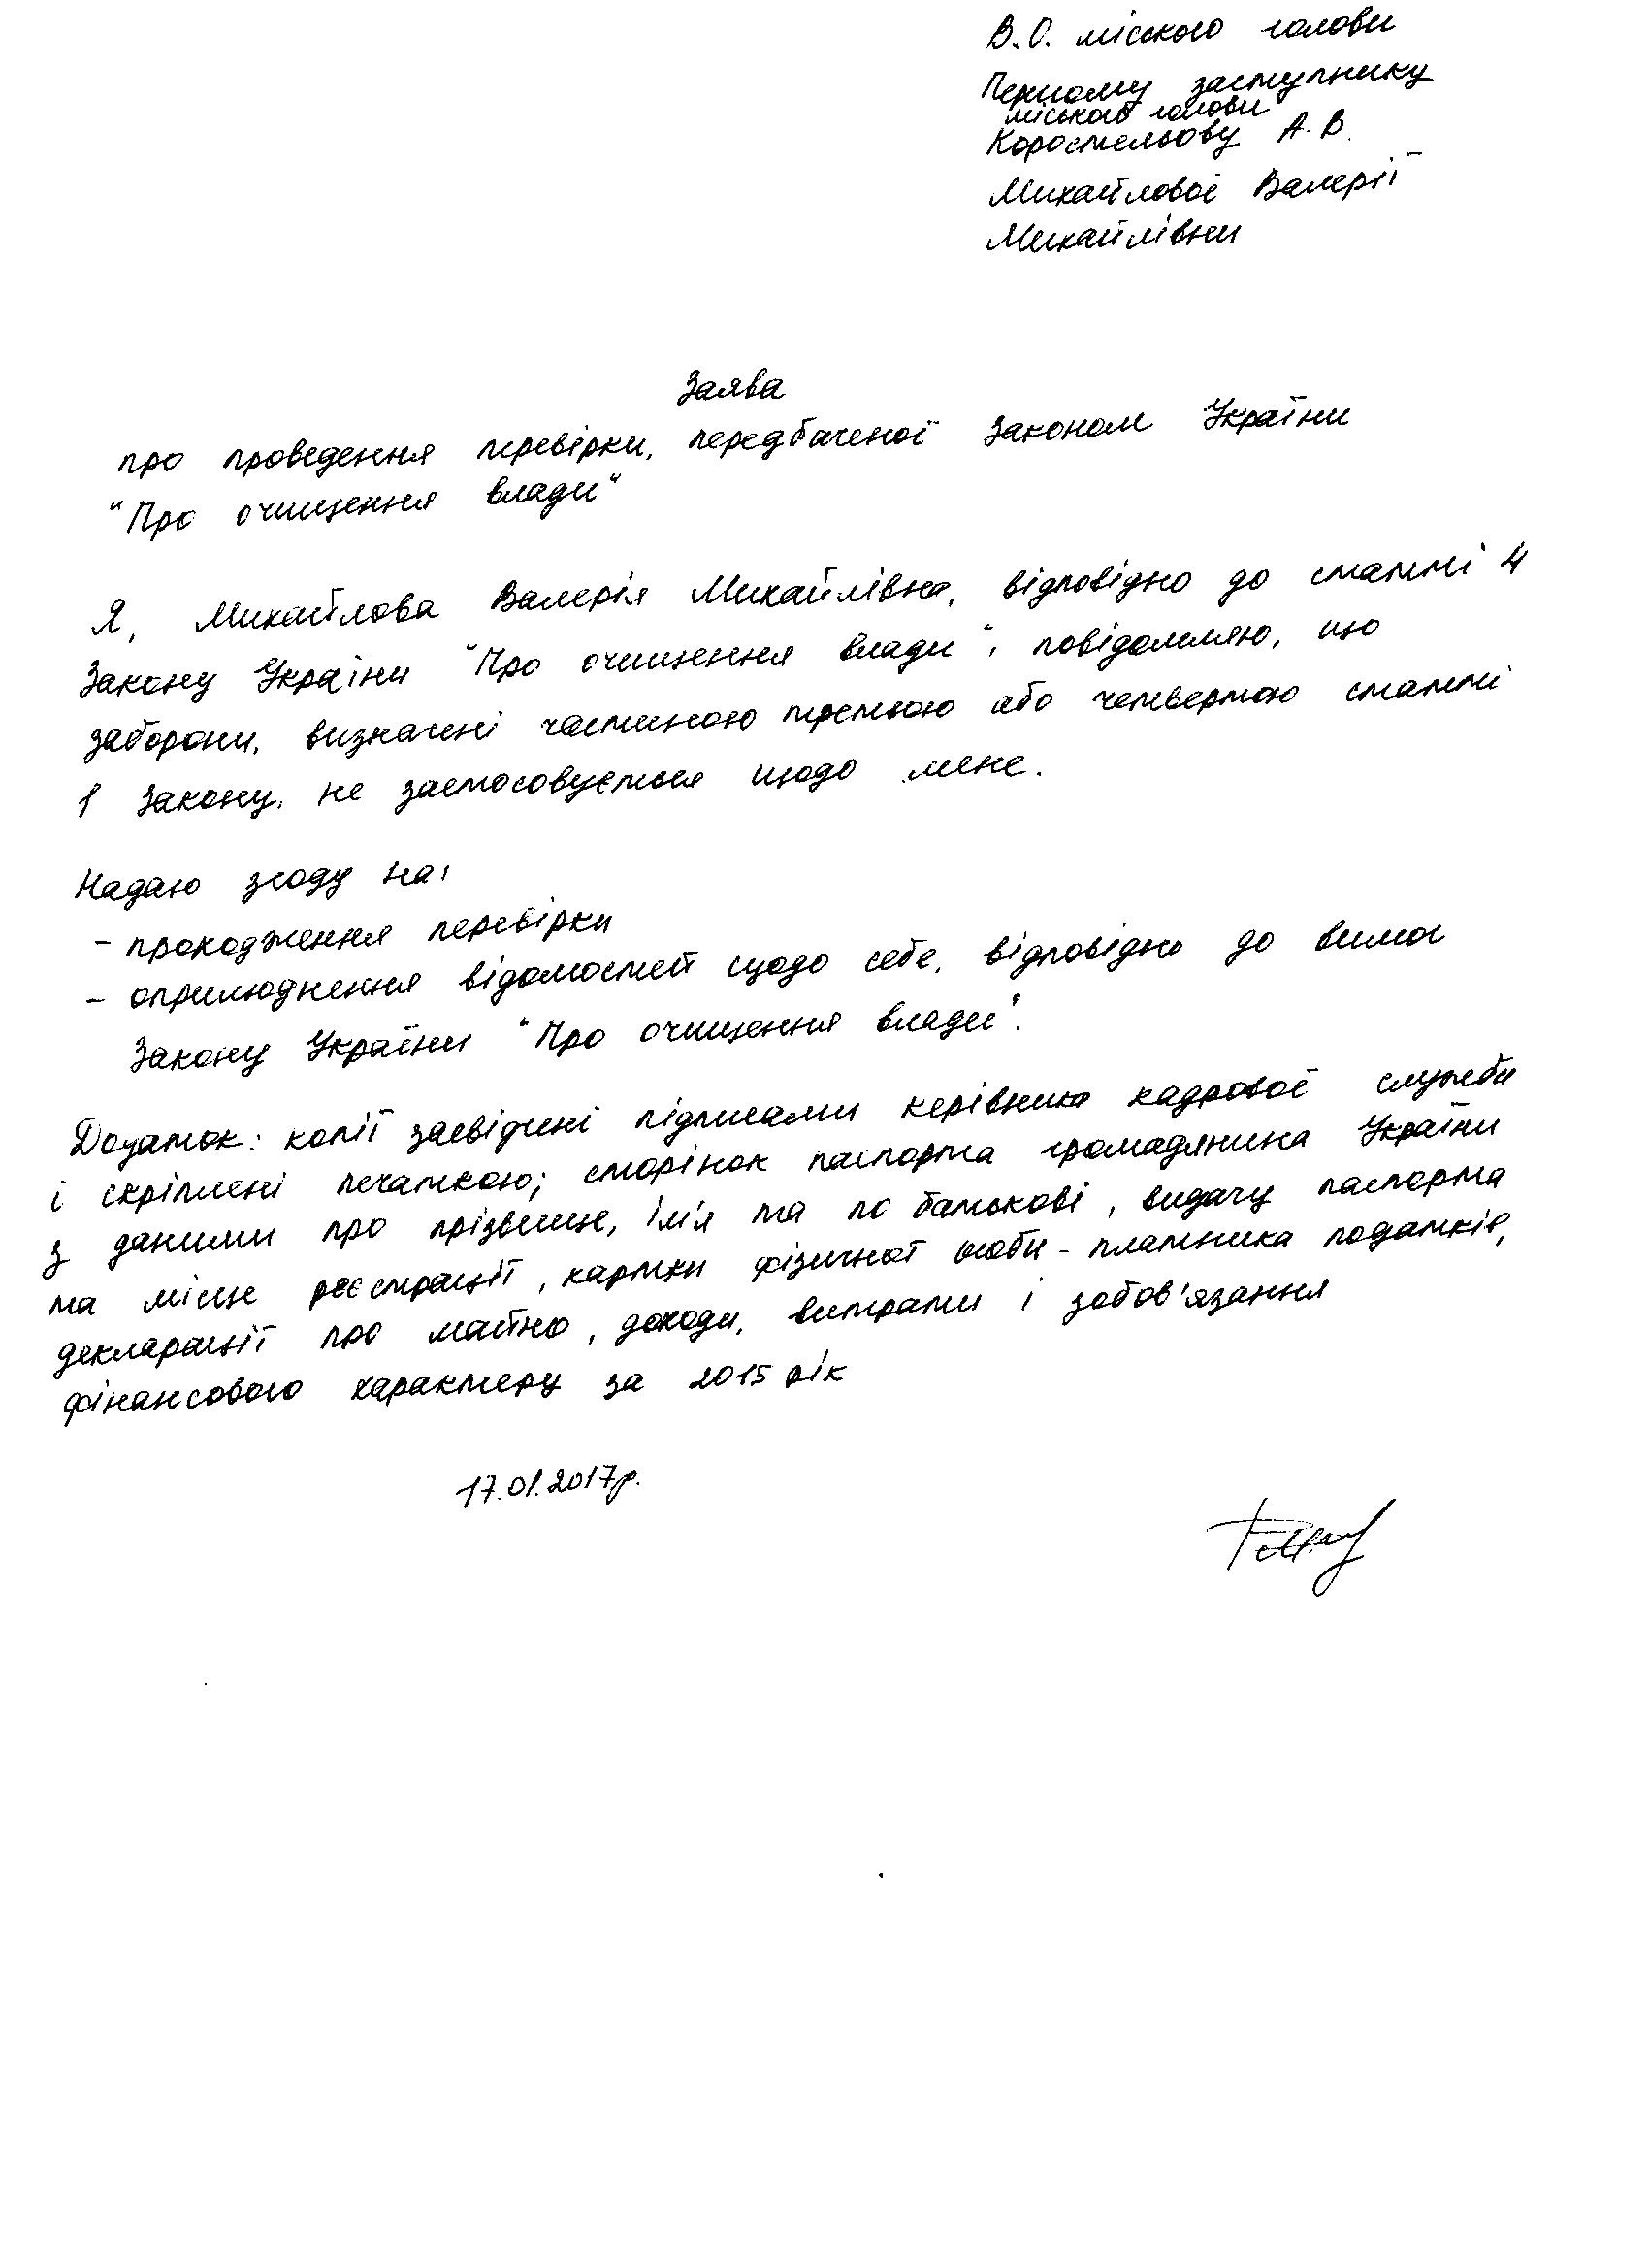 В.О. міського голови
Першому заступнику
міського голови
Коростельову А.В.
Михайлової Валерії
Михайлівни
Заява
про проведення перевірки, передбаченої Законом України
"Про очищення влади"
Я, Михайлова Валерія Михайлівна, відповідно до статті 4
Закону України "Про очищення влади", повідомляю, що
заборони, визначені частиною третьою або четвертою статті
1 Закону, не застосовується щодо мене.
Надаю згоду на:
- проходження перевірки
- оприлюднення відомостей щодо себе, відповідно до вимог
Закону України "Про очищення влади".
Додаток: копії засвідчені підписами керівника кадрової служби
і скріплені печаткою; сторінок паспорта громадянина України
з даними про прізвище, ім'я та по батькові, видачу паспорта
та місце реєстрації, картки фізичної особи - платника податків,
декларації про майно, доходи, витрати і зобов'язання
фінансового характеру за 2015 рік
17.01.2017р.